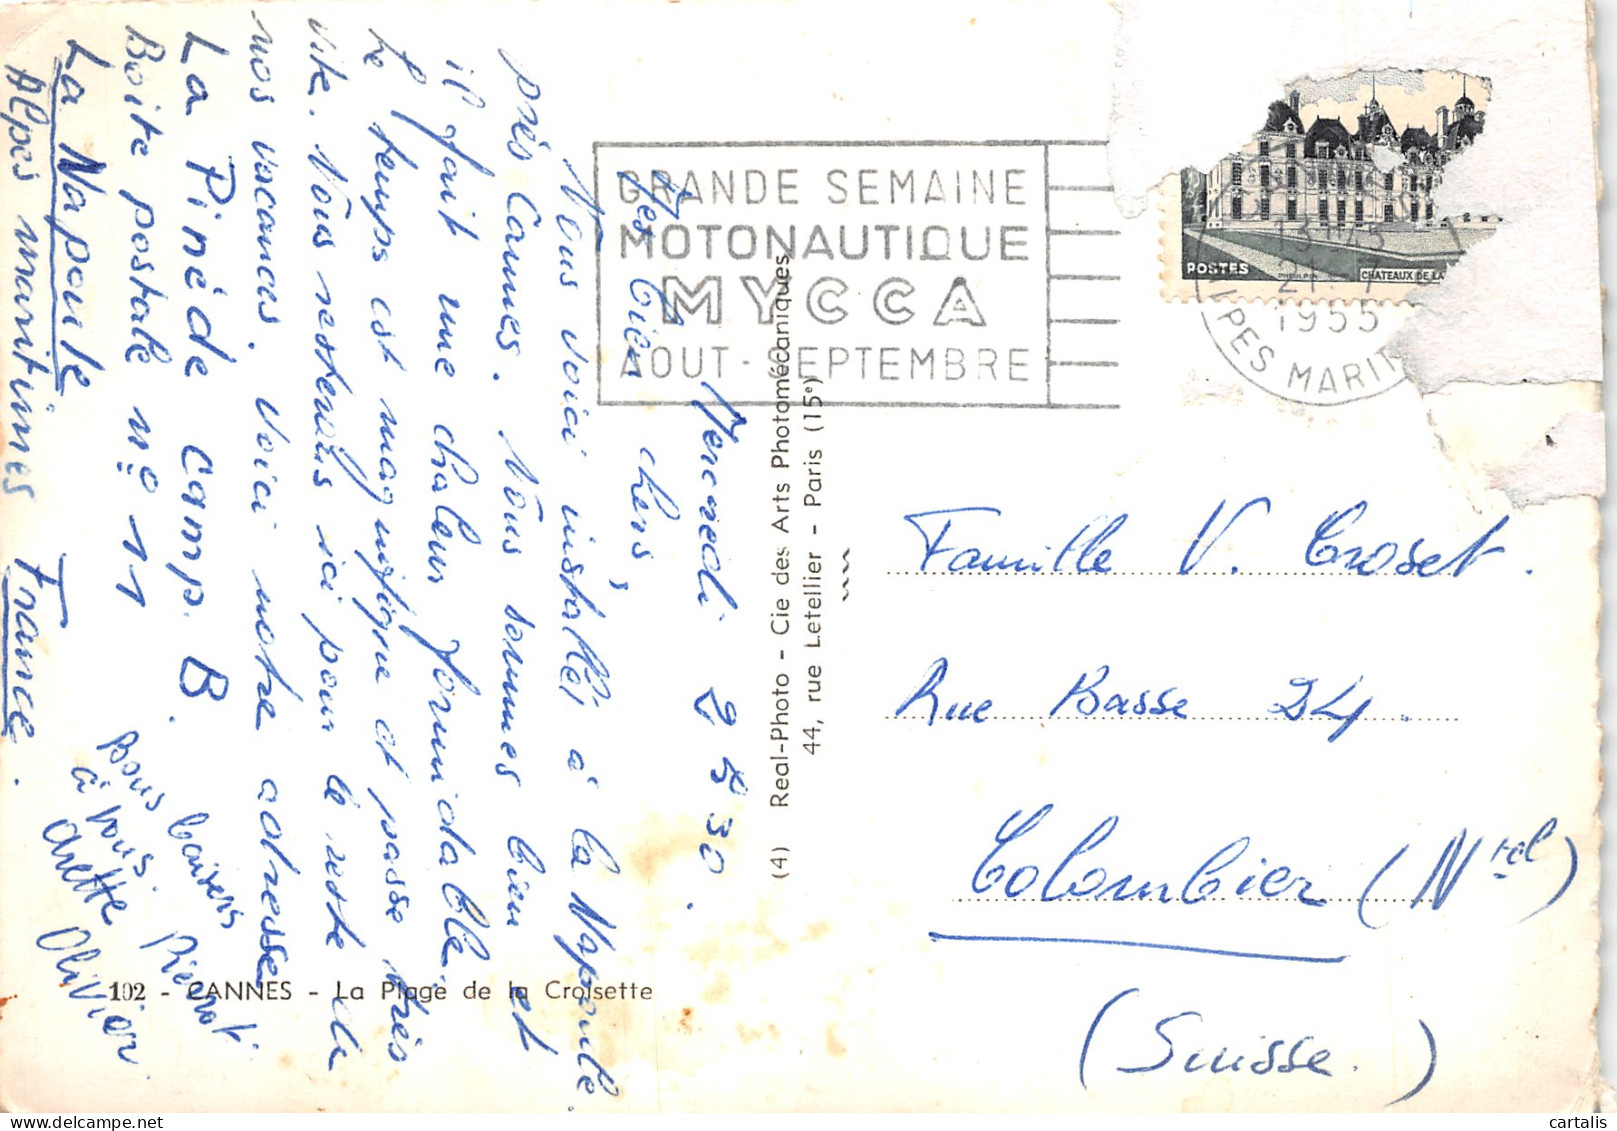 Mercredi 2 8 30.
Mes bien chers,
Nous voici installés à la Napoule
près Cannes. Nous sommes bien et
il fait une chaleur formidable.
Le temps est magnifique et passe très
vite. Nous resterons ici pour le reste de
nos vacances. Voici notre adresse
La Pinède Camp. B.
Boite postale no 11
La Napoule
Alpes maritimes France.
Bons baisers
à vous.
Pierrot
Arlette
Olivier
102 - CANNES - La Plage de la Croisette
(4) Real-Photo - Cie des Arts Photomécaniques
44, rue Letellier - Paris (15e)
GRANDE SEMAINE
MOTONAUTIQUE
MYCCA
AOUT - SEPTEMBRE
POSTES
CHATEAUX DE LA
1955
ALPES MARIT
Famille V. Croset.
Rue Basse 24.
Colombier (Ntel)
(Suisse.)
cartalis